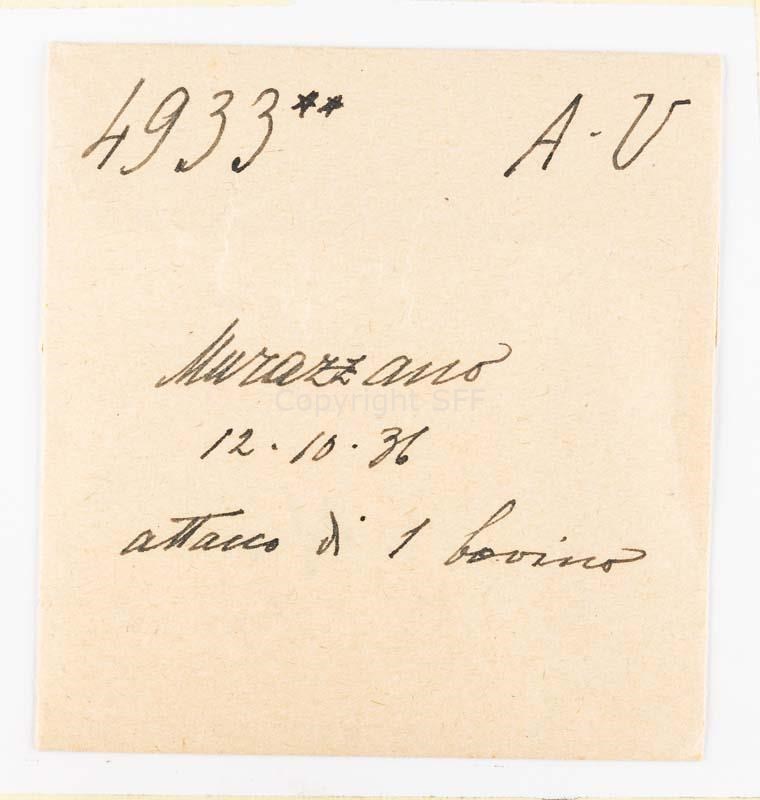 4933** A-V
Murazzano
Copyright SFF
12·10·36
attacco di 1 bovino